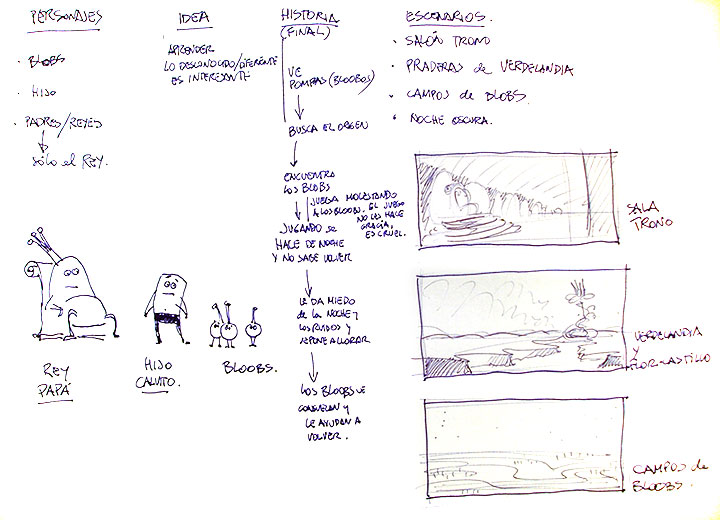 PERSONAJES
· BLOBS
· HIJO
· PADRES/REYES
SÓLO el REY.
REY
PAPÁ
HIJO
CALVITO.
BLOOBS.
IDEA
APRENDER
LO DESCONOCIDO/DIFERENTE
ES INTERESANTE
HISTORIA
(FINAL)
VE
POMPAS (BLOOBOS)
BUSCA EL ORIGEN
ENCUENTRA
LOS BLOBS
JUEGA MOLESTANDO
A LOS BLOOBS. EL JUEGO
NO LES HACE
GRACIA,
ES CRUEL.
JUGANDO se
HACE DE NOCHE
Y NO SABE VOLVER
LE DA MIEDO
de la NOCHE y
LOS RUIDOS y
SE PONE A LLORAR
LOS BLOOBS LE
CONSUELAN Y
LE AYUDAN A
VOLVER.
ESCENARIOS.
· SALÓN TRONO
· PRADERAS de VERDELANDIA
· CAMPOS de BLOBS.
· NOCHE OSCURA.
SALA
TRONO
VERDELANDIA
Y
FLOR-CASTILLO
CAMPOS de
BLOOBS.